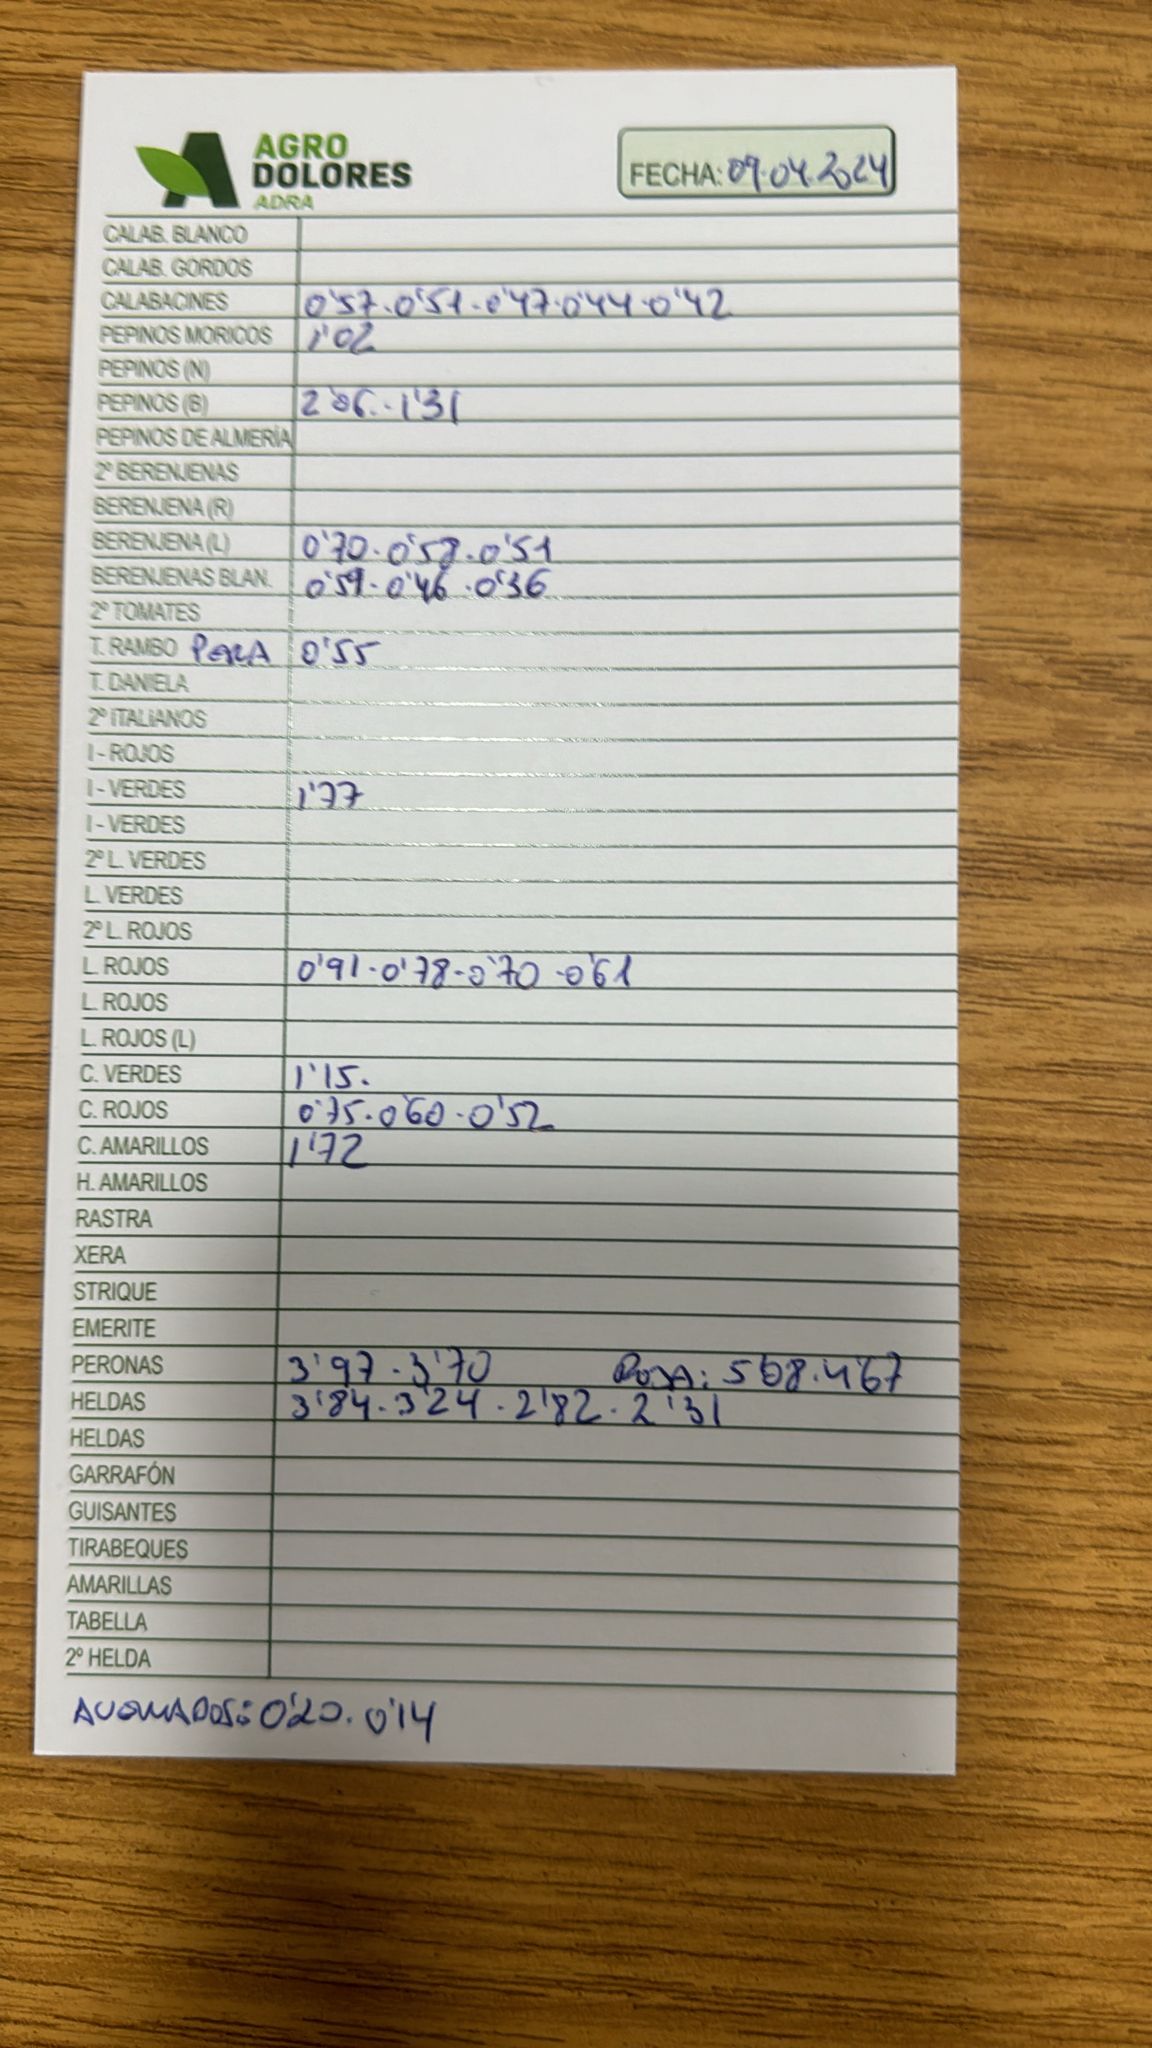 AGRO
DOLORES
ADRA
FECHA: 09.04.2024
CALAB. BLANCO
CALAB. GORDOS
CALABACINES 0'57.0'51-0'47.0'44.0'42
PEPINOS MORICOS 1'02
PEPINOS (N)
PEPINOS (B) 2'06.-1'31
PEPINOS DE ALMERÍA
2º BERENJENAS
BERENJENA (R)
BERENJENA (L) 0'70.0'58.0'51
BERENJENAS BLAN. 0'59.0'46.0'36
2º TOMATES
T. RAMBO PERA 0'55
T. DANIELA
2º ITALIANOS
I - ROJOS
I - VERDES 1'77
I - VERDES
2º L. VERDES
L. VERDES
2º L. ROJOS
L. ROJOS 0'91.0'78-0'70.0'61
L. ROJOS
L. ROJOS (L)
C. VERDES 1'15.
C. ROJOS 0'75.0'60.0'52
C. AMARILLOS 1'72
H. AMARILLOS
RASTRA
XERA
STRIQUE
EMERITE
PERONAS 3'97.3'70 ROJA: 5'08.4'67
HELDAS 3'84.3'24.2'82.2'31
HELDAS
GARRAFÓN
GUISANTES
TIRABEQUES
AMARILLAS
TABELLA
2º HELDA
0'20.0'14